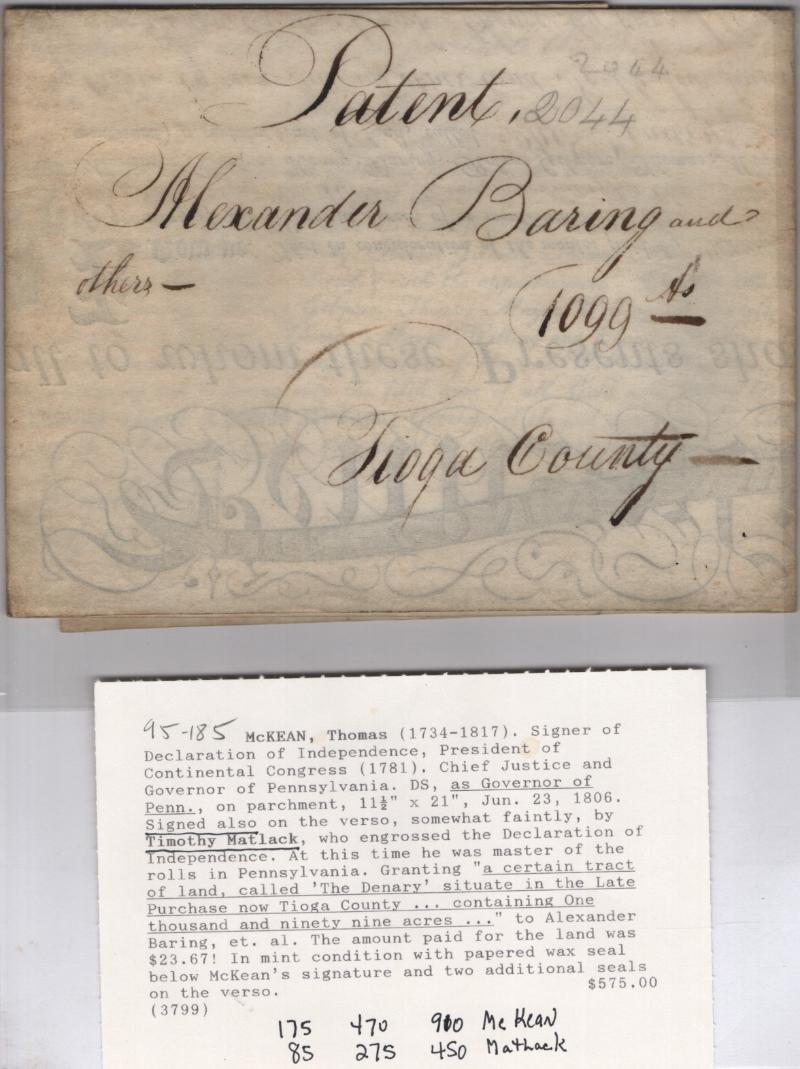 2044
Patent, 2044
Alexander Baring and
others —
1099 As
Tioga County —
all to whom these Presents sha
95-185 McKEAN, Thomas (1734-1817). Signer of
Declaration of Independence, President of
Continental Congress (1781). Chief Justice and
Governor of Pennsylvania. DS, as Governor of
Penn., on parchment, 11½" x 21", Jun. 23, 1806.
Signed also on the verso, somewhat faintly, by
Timothy Matlack, who engrossed the Declaration of
Independence. At this time he was master of the
rolls in Pennsylvania. Granting "a certain tract
of land, called 'The Denary' situate in the Late
Purchase now Tioga County ... containing One
thousand and ninety nine acres ..." to Alexander
Baring, et. al. The amount paid for the land was
$23.67! In mint condition with papered wax seal
below McKean's signature and two additional seals
on the verso. $575.00
(3799)
175 470 900 McKean
85 275 450 Mathack